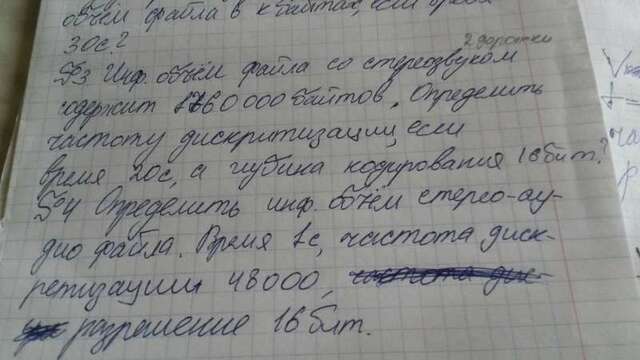 объём файла в кбайтах, если время
30с?
2 дорожки
№3 Инф. объём файла со стереозвуком
содержит 1760000 байтов. Определить
частоту дискритизации, если
время 20с, а глубина кодирования 16 бит?
№4 Определить инф. объём стерео-ау-
дио файла. Время 1с, частота диск-
ретизации 48000,
разрешение 16 бит.